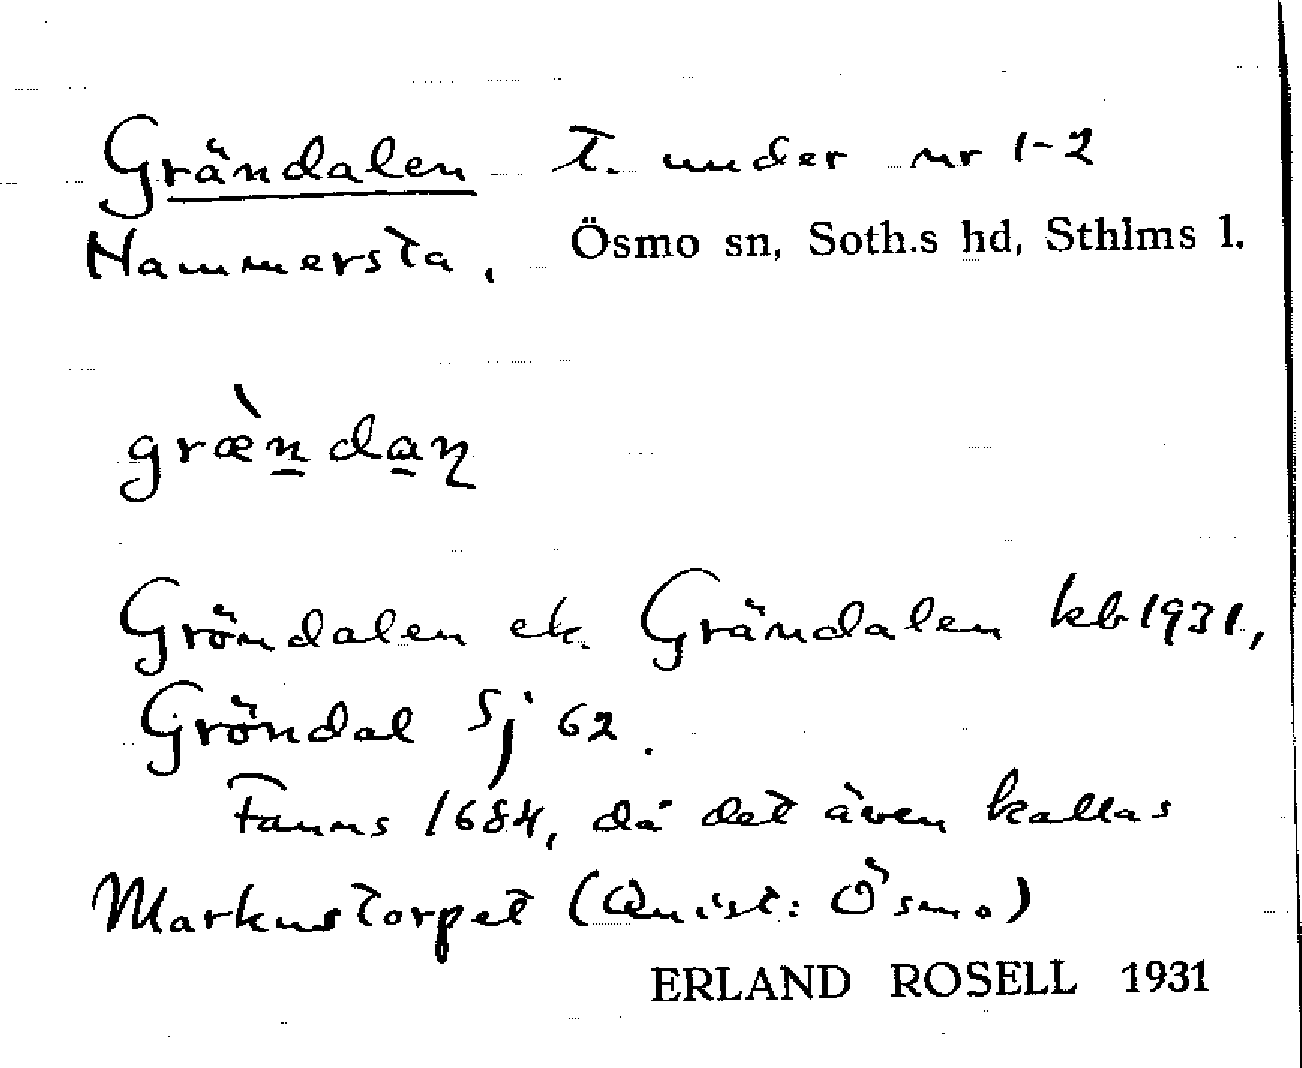 Grändalen T. under nr 1-2
Hammersta, Ösmo sn, Soth.s hd, Sthlms l.
græ̀n̲da̲ɳ
Gröndalen el. Grändalen kb 1931,
Gröndal Sj 62.
Fanns 1684, då det även kallas
Markustorpet (Quist: Ösmo)
ERLAND ROSELL 1931